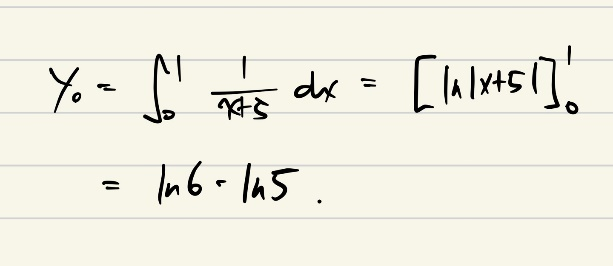 y₀ = ∫₀¹ 1/(x+5) dx = [ln|x+5|]₀¹
= ln6 - ln5 .